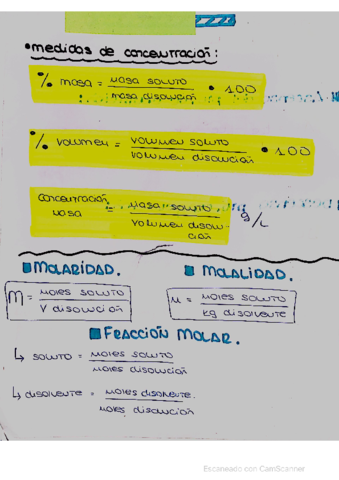 • medidas de concentración:
% masa = masa soluto / masa disolución • 100
% volumen = volumen soluto / volumen disolución • 100
concentración masa = masa soluto / volumen disolu-ción g/L
MOLARIDAD.
MOLALIDAD.
M = moles soluto / V disolución
m = moles soluto / kg disolvente
FRACCIÓN MOLAR.
↳ soluto = moles soluto / moles disolución
↳ disolvente = moles disolvente. / moles disolución
Escaneado con CamScanner